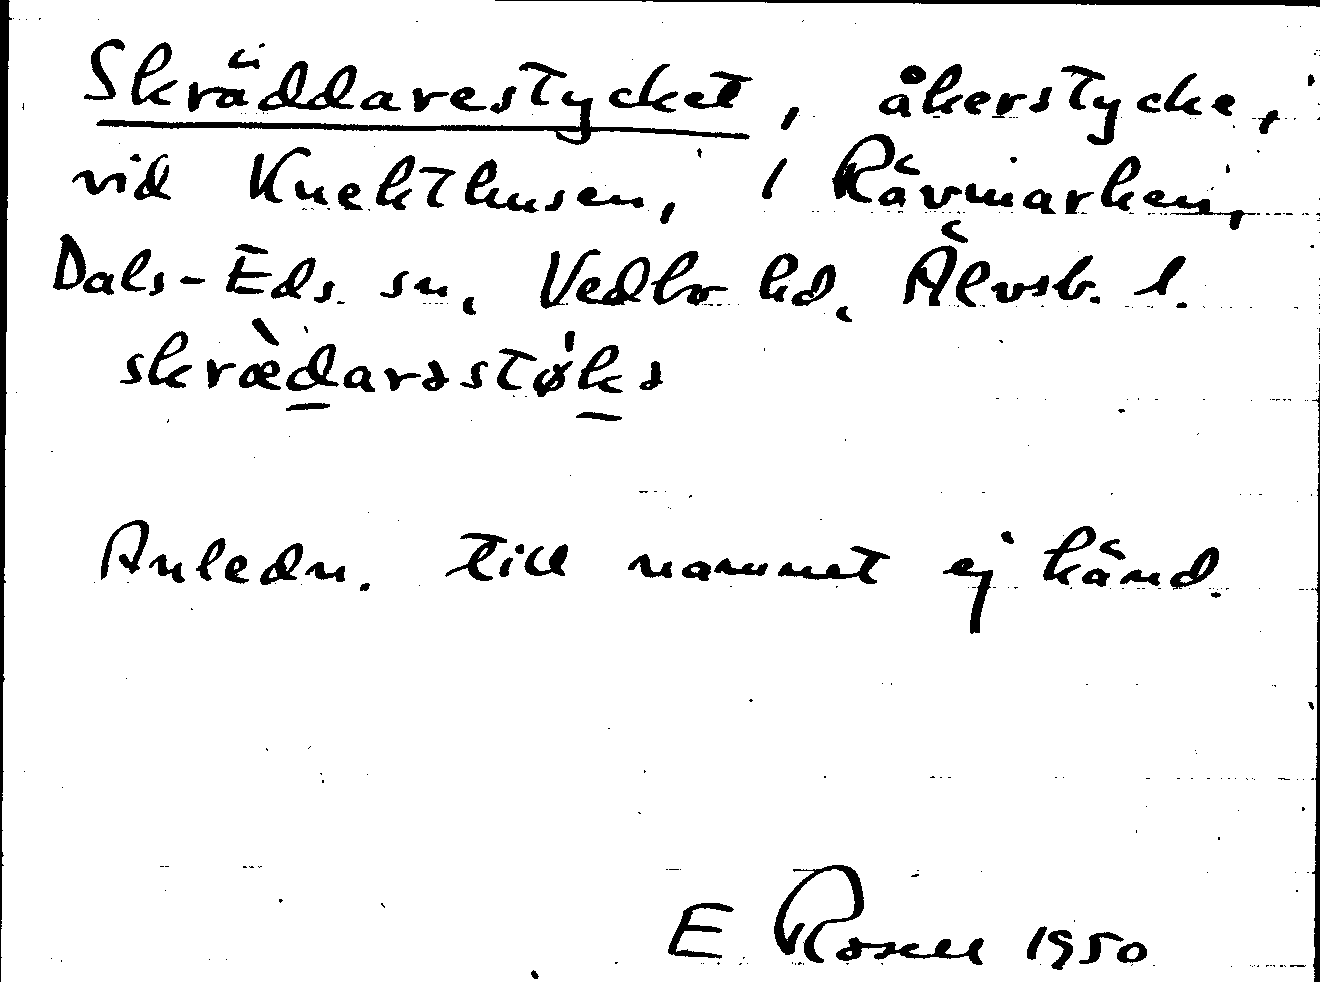 Skräddarestycket, åkerstycke,
vid Knekthusen, i Rävmarken,
Dals-Eds sn, Vedbo hd, Älvsb. l.
skræ̀darəstø̍kə
Anledn. till namnet ej känd.
E Rosell 1950